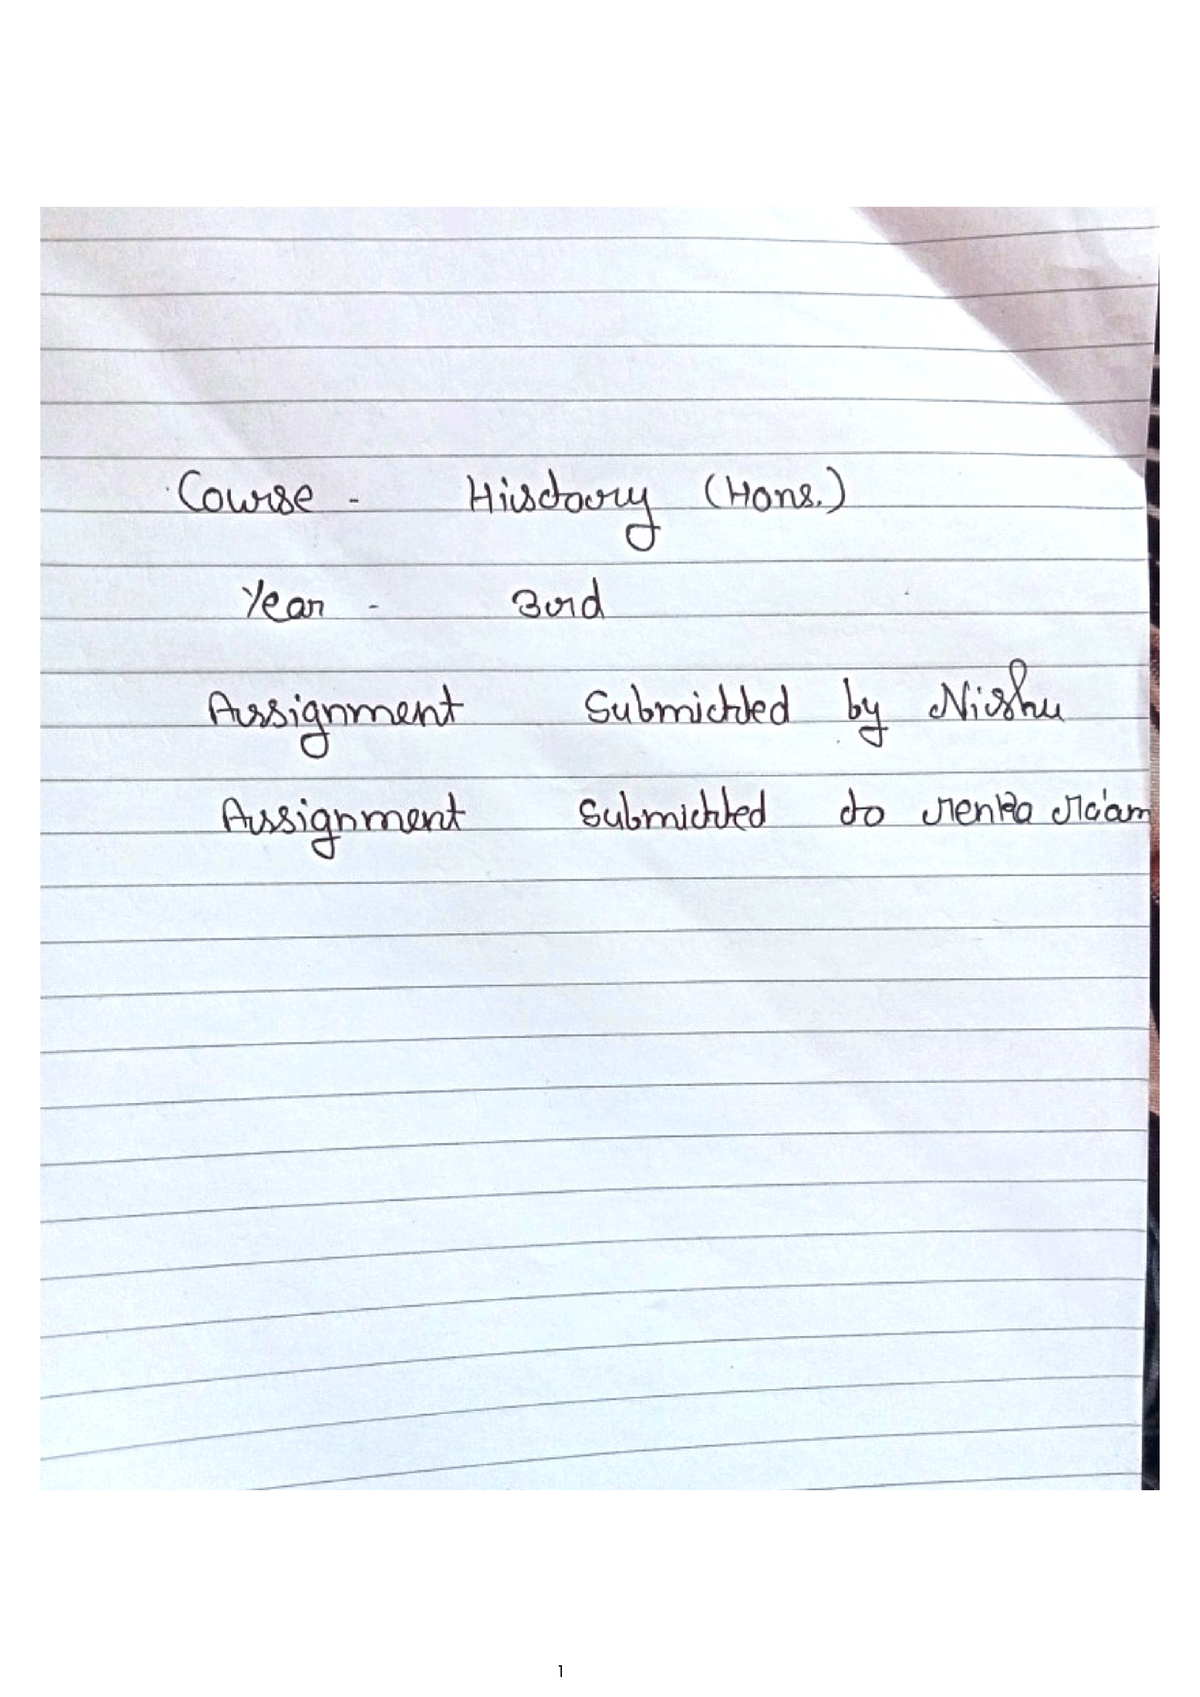 Course - History (Hons.)
Year - 3rd
Assignment Submitted by Nishu
Assignment Submitted to Menka Ma'am
1